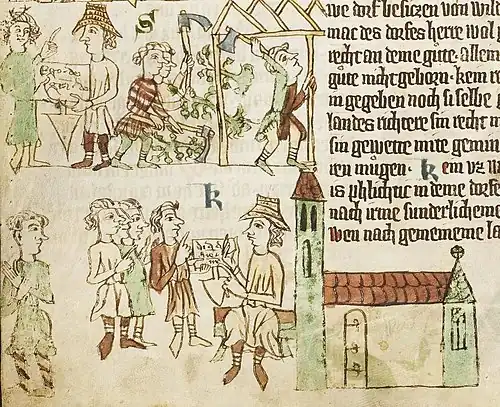 S
Ego dei
we dorf besiczen von wild
mac des dorfes herre wol
recht an deme gute · allein
gute nicht geborn · kein
in gegeben noch si selbe
landes richtere sin recht
sin gewette mite gemin
ren mugen · Kein uz w
is phlichtic in deme dorfe
nach irme sunderlicheme
wen nach gemeineme la
K